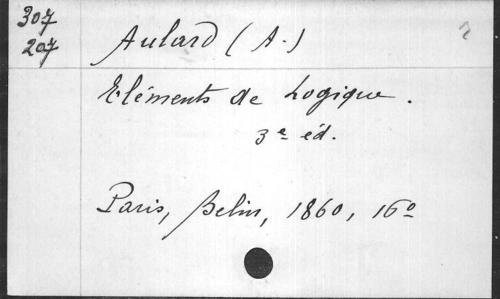 307
207
Aulard (A.)
Eléments de Logique.
3e éd.
Paris, Belin, 1860, 16o